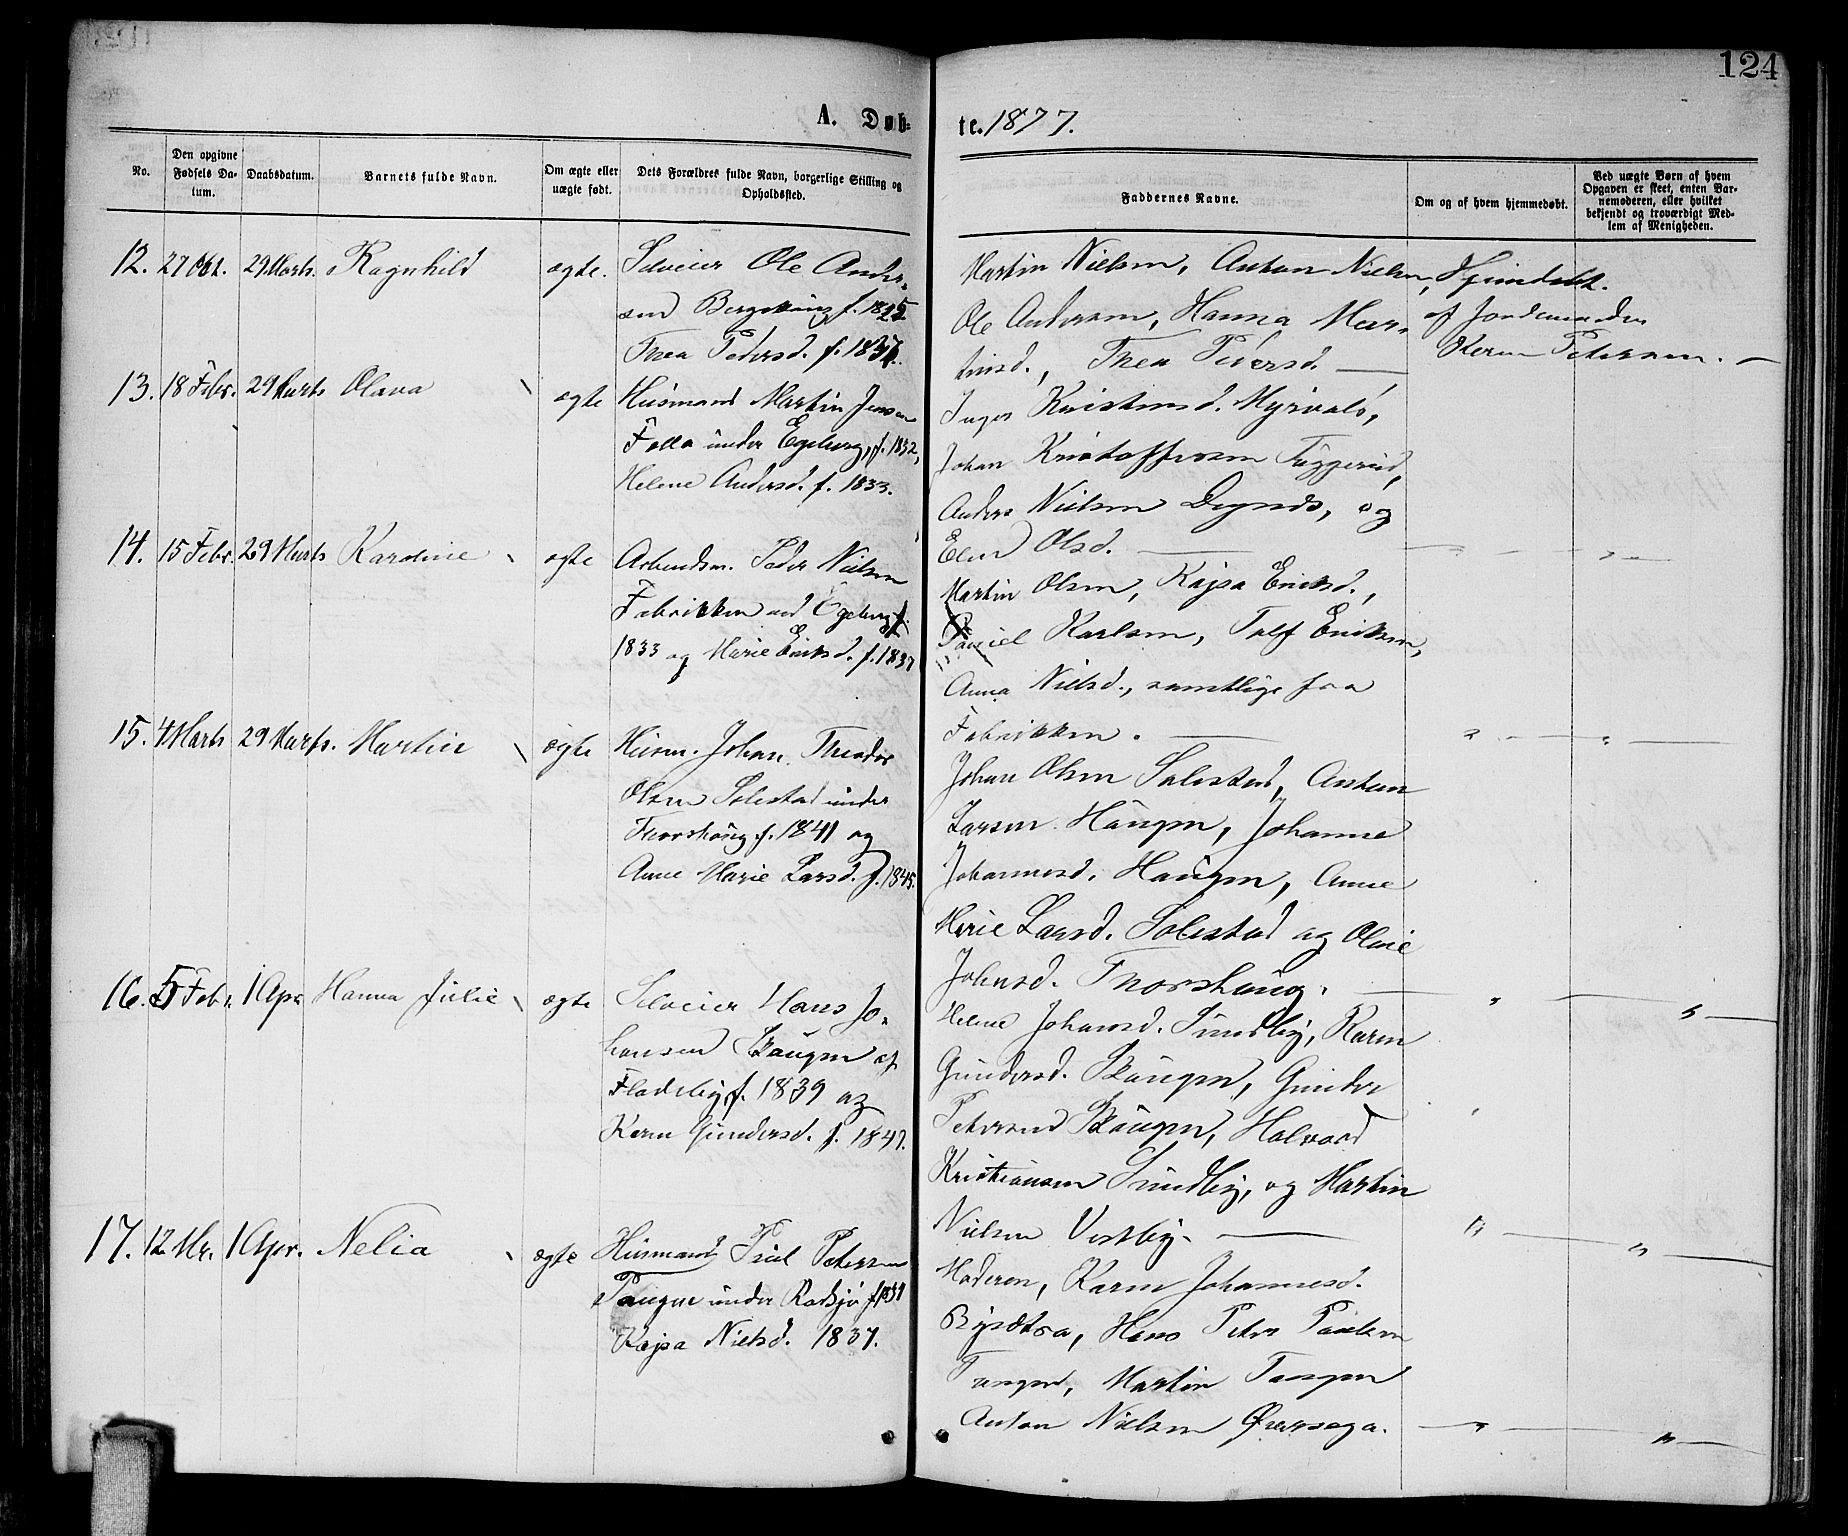 124
A. Døb-
te. 1877.
No.
Den opgivne Fødsels Da-
tum.
Daabsdatum.
Barnets fulde Navn.
Om ægte eller
uægte født.
Dets Forældres fulde Navn, borgerlige Stilling og
Opholdssted.
Faddernes Navne.
Om og af hvem hjemmedøbt.
Ved uægte Børn af hvem
Opgaven er skeet, enten Bar-
nemoderen, eller hvilket
bekjendt og troværdigt Med-
lem af Menigheden.
12. 27 Okt. 29 Marts. Ragnhild ægte.
Selveier Ole Ander-
sen f. 1825
Thea Pedersd. f. 1837.
Martin Nielsen, Anton Nielsen,
Ole Andersen, Hanna Mar-
tinsd., Thea Pedersd.
Hjemdøbt.
af Jordemoder
Karen Petersen.
13. 18 Febr. 29 Marts Olava ægte
Husmand Martin Jensen
Falla under Egeberg, f. 1832,
Helene Andersd. f. 1833.
Inger Kristinsd. Myrvold,
Johan Kristoffersen
Anders Nielsen og
Elen Olsd.
14. 15 Febr. 29 Marts Karoline ægte
Arbeidsm. Peder Nielsen
Fabrikken ved Egeberg f.
1833 og Marie Eriksd. f. 1837
Martin Olsen, Kajsa Eriksd.,
Daniel Karlsen, Eriksen,
Anna Nielsd., samtlige fra
Fabrikken.
15. 4 Marts 29 Marts. Martin ægte
Husm. Johan Theodor
Olsen Solestad under
Thorshaug f. 1841 og
Anne Marie Larsd. f. 1845.
Johan Olsen Solestad, Anton
Larsen Haugen, Johanne
Johannesd. Haugen, Anne
Marie Larsd. Solestad og Oline
Johnsd. Thorshaug.
16. 5 Febr. 1 Apr Hanna Julie ægte
Selveier Hans Jo-
hansen Skaugen af
Fladeby, f. 1839 og
Karen Gundersd. f. 1847.
Helene Johansd. Sundby, Karen
Gundersd. Skaugen, Gunder
Petersen Skaugen, Halvord
Kristiansen Sundby, og Martin
Nielsen Vestby.
17. 12 Mr. 1 Apr. Nelia ægte
Husmand Paul Petersen
Tangen under Ratsjø f. 1831
Kajsa Nielsd. 1837.
Moderen, Karen Johannesd.
Bysætra, Hans Peter Paulsen
Tangen, Martin Tangen
Anton Nielsen